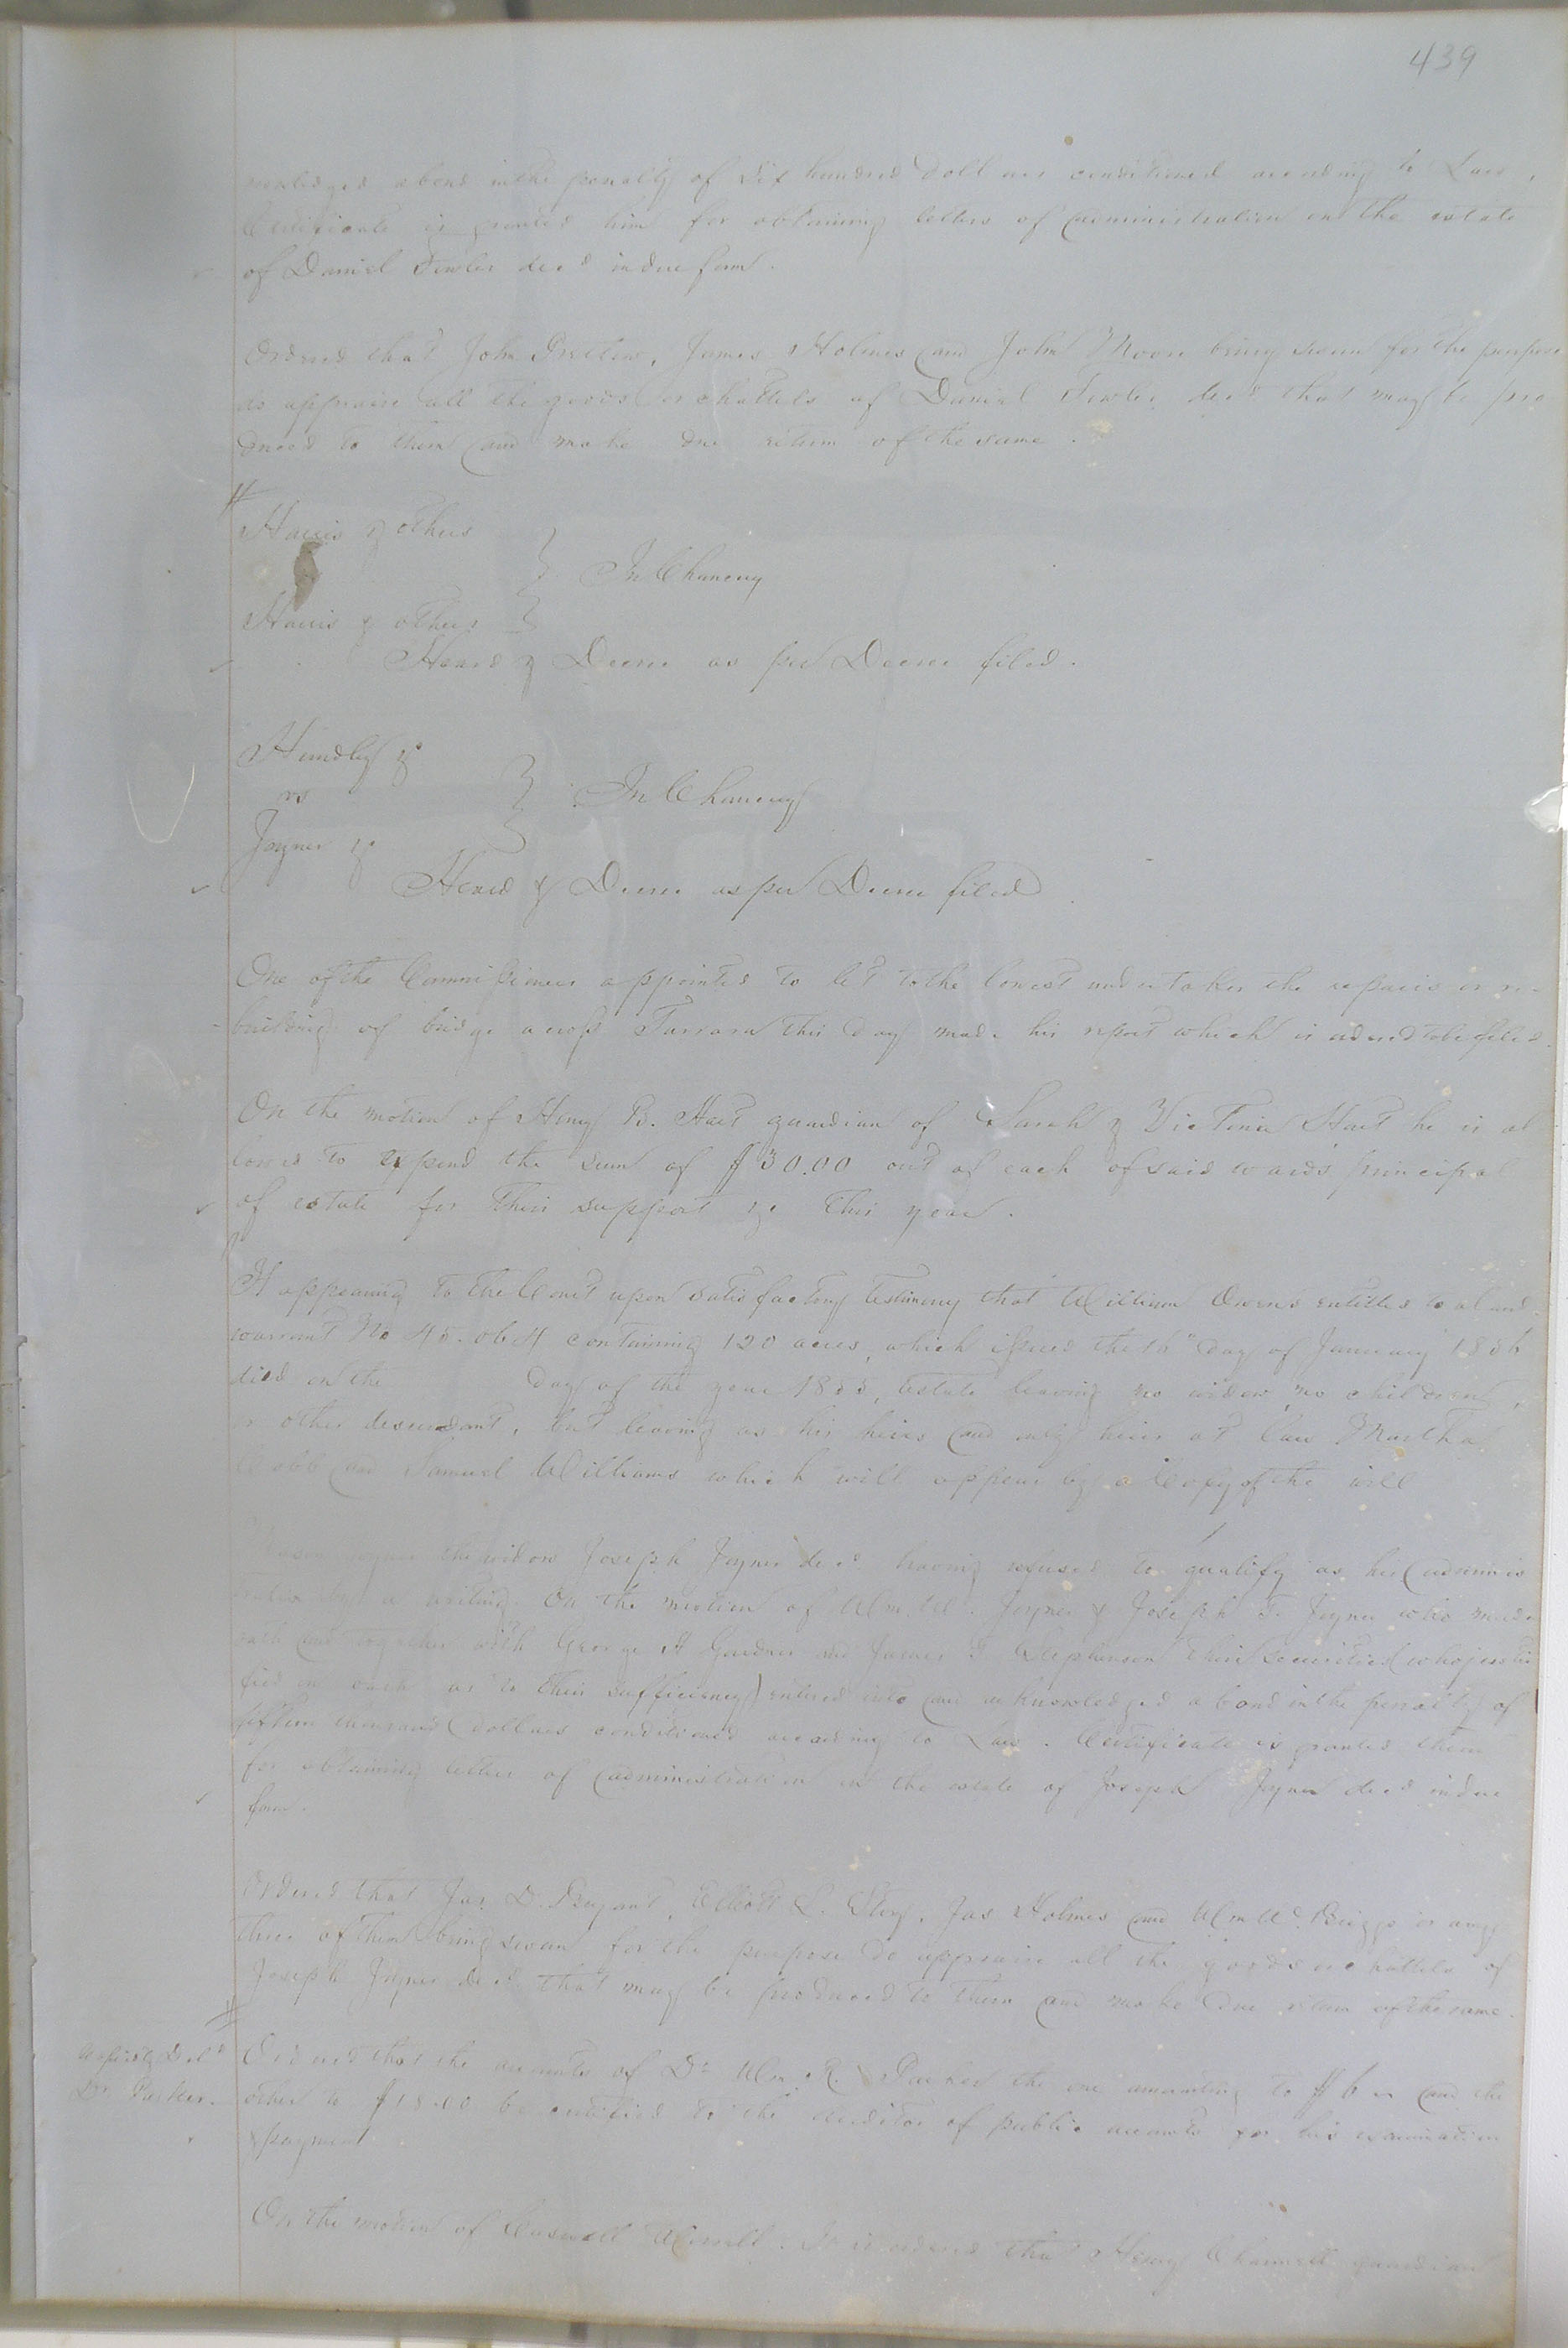 439
nowledged a bond in the penalty of Six hundred dollars conditioned according to Law,
Certificate is granted him for obtaining letters of administration on the estate
of Daniel Fowler decd in due form.
Ordered that John Pretlow, James Holmes and John Moore being sworn for the purpose
do appraise all the goods or chattels of Daniel Fowler decd that may be pro
duced to them and make due return of the same.
Harris & others
In Chancery
Harris & others
Heard & Decree as per Decree filed.
vs
In Chancery
Joyner &c
Heard & Decree as per Decree filed
One of the Commissioners appointed to let to the lowest undertaker the repairs or re-
building of bridge across Tarrara this day made his report which is ordered to be filed.
On the motion of Henry B. Hart guardian of Sarah & Hart he is al
lowed to expend the sum of $30.00 out of each of said wards principal
of estate for their support &c this year.
It appearing to the Court upon satisfactory testimony that William Owens entitled to a land
warrant No containing 120 acres, which issued the day of January
died on the day of the year 1855, testate leaving no widow, no children,
or other descendant, but leaving as his heirs and only heirs at law Martha
and Samuel Williams which will appear by a Copy of the will
Joyner the widow Joseph Joyner decd having refused to qualify as his adminis
tratrix by a writing. On the motion of Wm. W. Joyner & Joseph T. Joyner who made
oath and together with George H Gardner and James T. Stephenson their securities (who justi
fied on oath as to their sufficiency) entered into and acknowledged a bond in the penalty of
fifteen thousand dollars conditioned according to Law. Certificate is granted them
for obtaining letters of administration on the estate of Joseph Joyner decd in due
form.
Ordered that Jas. D. Bryant, Elliott L. Story, Jas Holmes and Wm W. Briggs or any
three of them being sworn for the purpose do appraise all the goods or chattels of
Joseph Joyner decd that may be produced to them and make due return of the same.
Copies Deld
Dr Parker.
Ordered that the accounts of Dr Wm. R. Parker the one amounting to and the
other to $18.00 be certified to the Auditor of public accounts for his examination
& payment
On the motion of Caswell Worrell. It is ordered that Henry Channell guardian